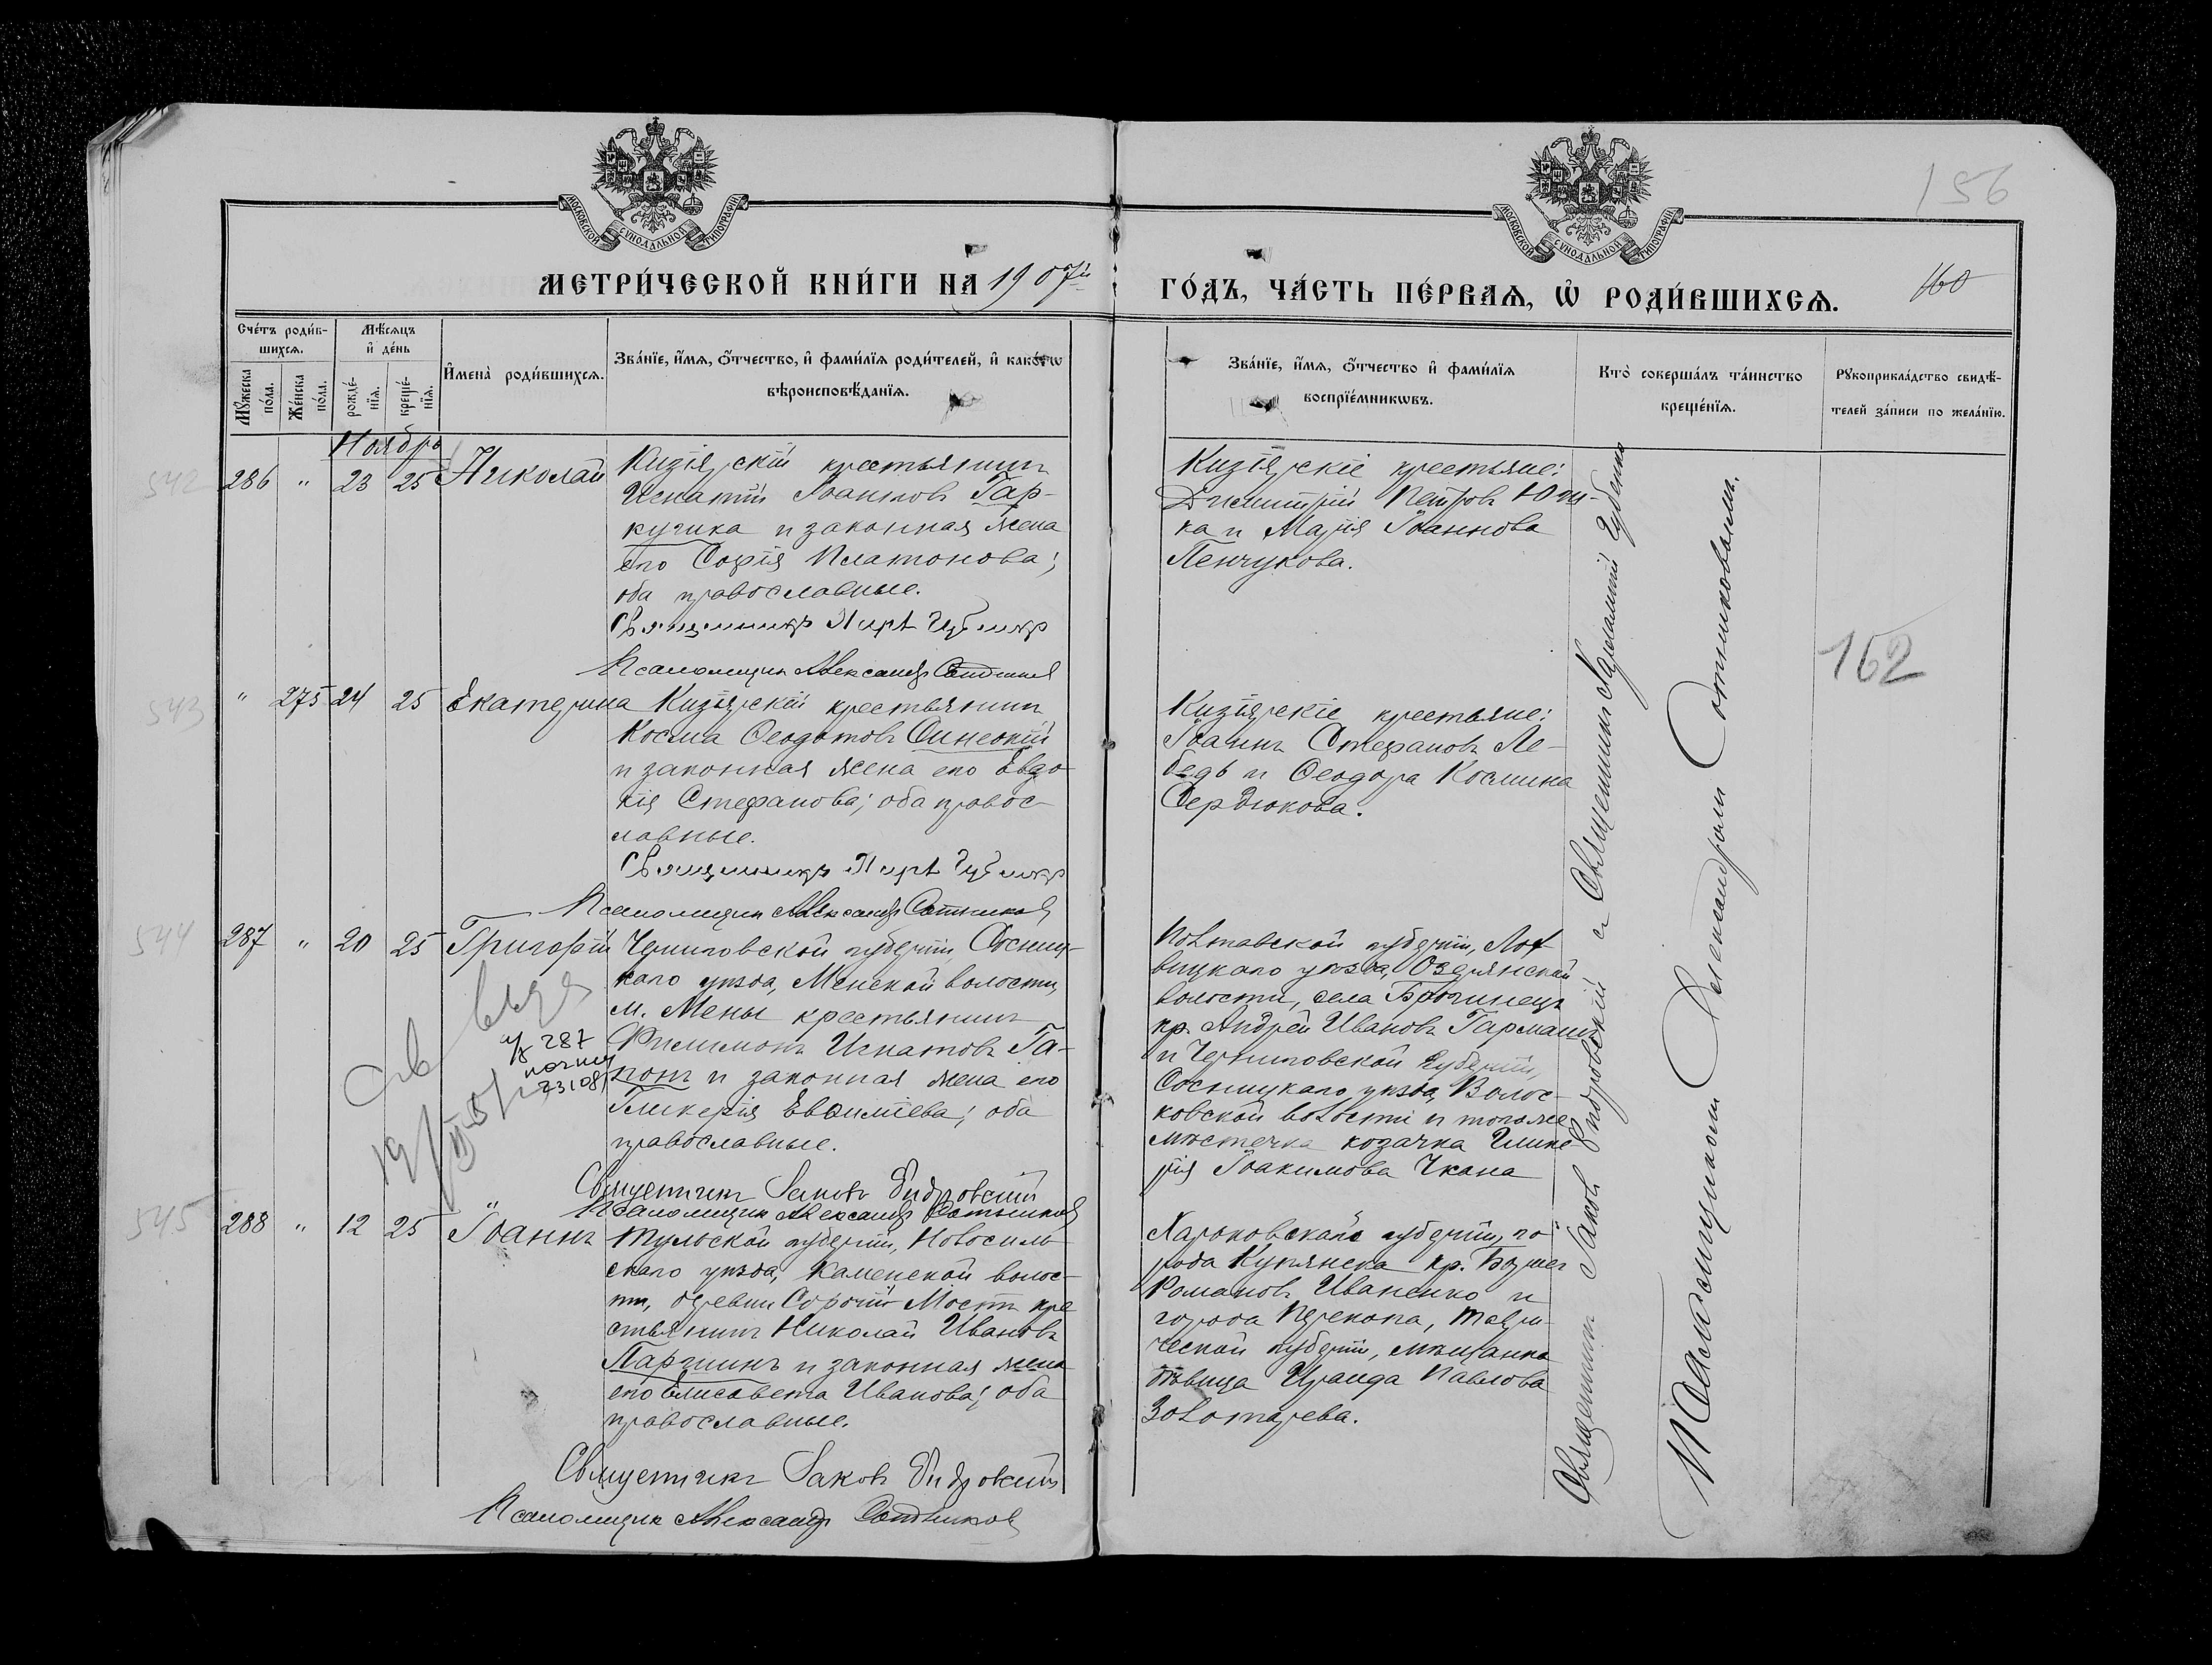 МОСКОВСКОЙ СѴНОДАЛЬНОЙ ТИПОГРАФІИ
МОСКОВСКОЙ СѴНОДАЛЬНОЙ ТИПОГРАФІИ
156
МЕТРИ́ЧЕСКОЙ КНИ́ГИ НА 1907й
ГО́ДЪ, ЧА́СТЬ ПЕ́РВАѦ, Ѡ҆ РОДИ́ВШИХСѦ.
160
Сче́тъ роди́в-
шихсѧ.
Мꙋжеска по́ла.
Же́нска по́ла.
Мѣ́сѧцъ
и҆ де́нь
рожде́-
нїѧ.
креще́-
нїѧ.
И҆мена̀ роди́вшихсѧ.
Зва́нїе, и҆́мѧ, ѻ҆́тчество, и҆ фами́лїѧ роди́телей, и҆ како́гѡ
вѣроисповѣ́данїѧ.
Зва́нїе, и҆́мѧ, ѻ҆́тчество и҆ фами́лїѧ
воспрїе́мникѡвъ.
Кто̀ соверша́лъ та́инство
креще́нїѧ.
Рꙋкоприкла́дство свидѣ́-
телей за́писи по жела́нїю.
Ноябрь
542
286 " 23 25 Николай
Кизіярскій крестьянинъ
Игнатій Іоанновъ Гар-
кушка и законная жена
его Софія Платонова;
оба православные.
Священникъ
Псаломщик Александр Сотников
Кизіярскіе крестьяне:
Димитрій Петровъ Ющ-
ка и Марія Іоаннова
Пенчукова.
543
" 275 24 25 Екатерина
Кизіярскій крестьянинъ
Косма Ѳеодотовъ Синеокій
и законная жена его Евдо-
кія Стефанова; оба правос-
лавные.
Священникъ
Псаломщик Александр Сотников
Кизіярскіе крестьяне:
Іоаннъ Стефановъ Ле-
бедь и Ѳеодора Космина
Сердюкова.
544
287 " 20 25 Григорій
Черниговской губерніи, Сосниц-
каго уѣзда, Менской волости,
м. Мены крестьянинъ
Филимонъ Игнатовъ Га-
понъ и законная жена его
Гликерія Евѳиміева; оба
православные.
Священникъ Іаковъ
Псаломщик Александр Сотников
287
Полтавской губерніи, Лох
вицкаго уѣзда, Озерянской
волости, села Бригинецъ
кр. Андрей Ивановъ Гармашъ
и Черниговской губерніи,
Сосницкаго уѣзда, Волос-
ковской волости и того же
мѣстечка козачка Глике-
рія Іоакимова Чкана
545
288 " 12 25 Іоаннъ
Тульской губерніи, Новосиль-
скаго уѣзда, Каменской волос-
ти, деревни Сорочій Мостъ кре
стьянинъ Николай Ивановъ
Паршинъ и законная жена
его Елисавета Иванова; оба
православные.
Священникъ Іаковъ
Псаломщик Александр Сотников
Харьковской губерніи, го
рода Купянска кр.
Романовъ Иваненко и
города Перекопа, Таври-
ческой губерніи, мѣщанка
дѣвица Ираида Павлова
Золотарева.
Священникъ Іаковъ с Священникомъ Харлампій Губенко
Псаломщикомъ Александромъ Сотниковымъ.
162